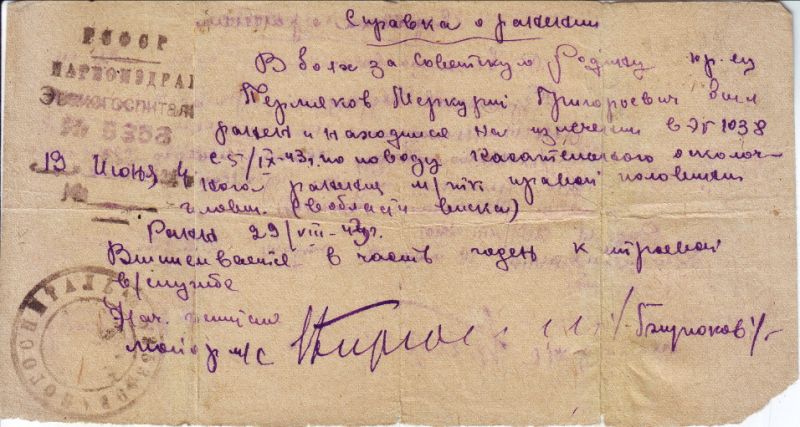 Справка о ранении
РСФСР
НАРКОМЗДРАВ
Эвакогоспиталь
№ 5353
13 Июня 4
№
В боях за Советскую Родину кр-ец
Пермяков Меркурий Григорьевич был
ранен и находился на излечении в ЭГ 1038
с 5/IX-43г. по поводу касательного осколоч-
ного ранения м/тк правой половины
головы. (в области виска)
Ранен 29/VIII-43г.
Выписывается в часть годен к строевой
в/службе
Нач.
Майор м/с /-Бирюков/-